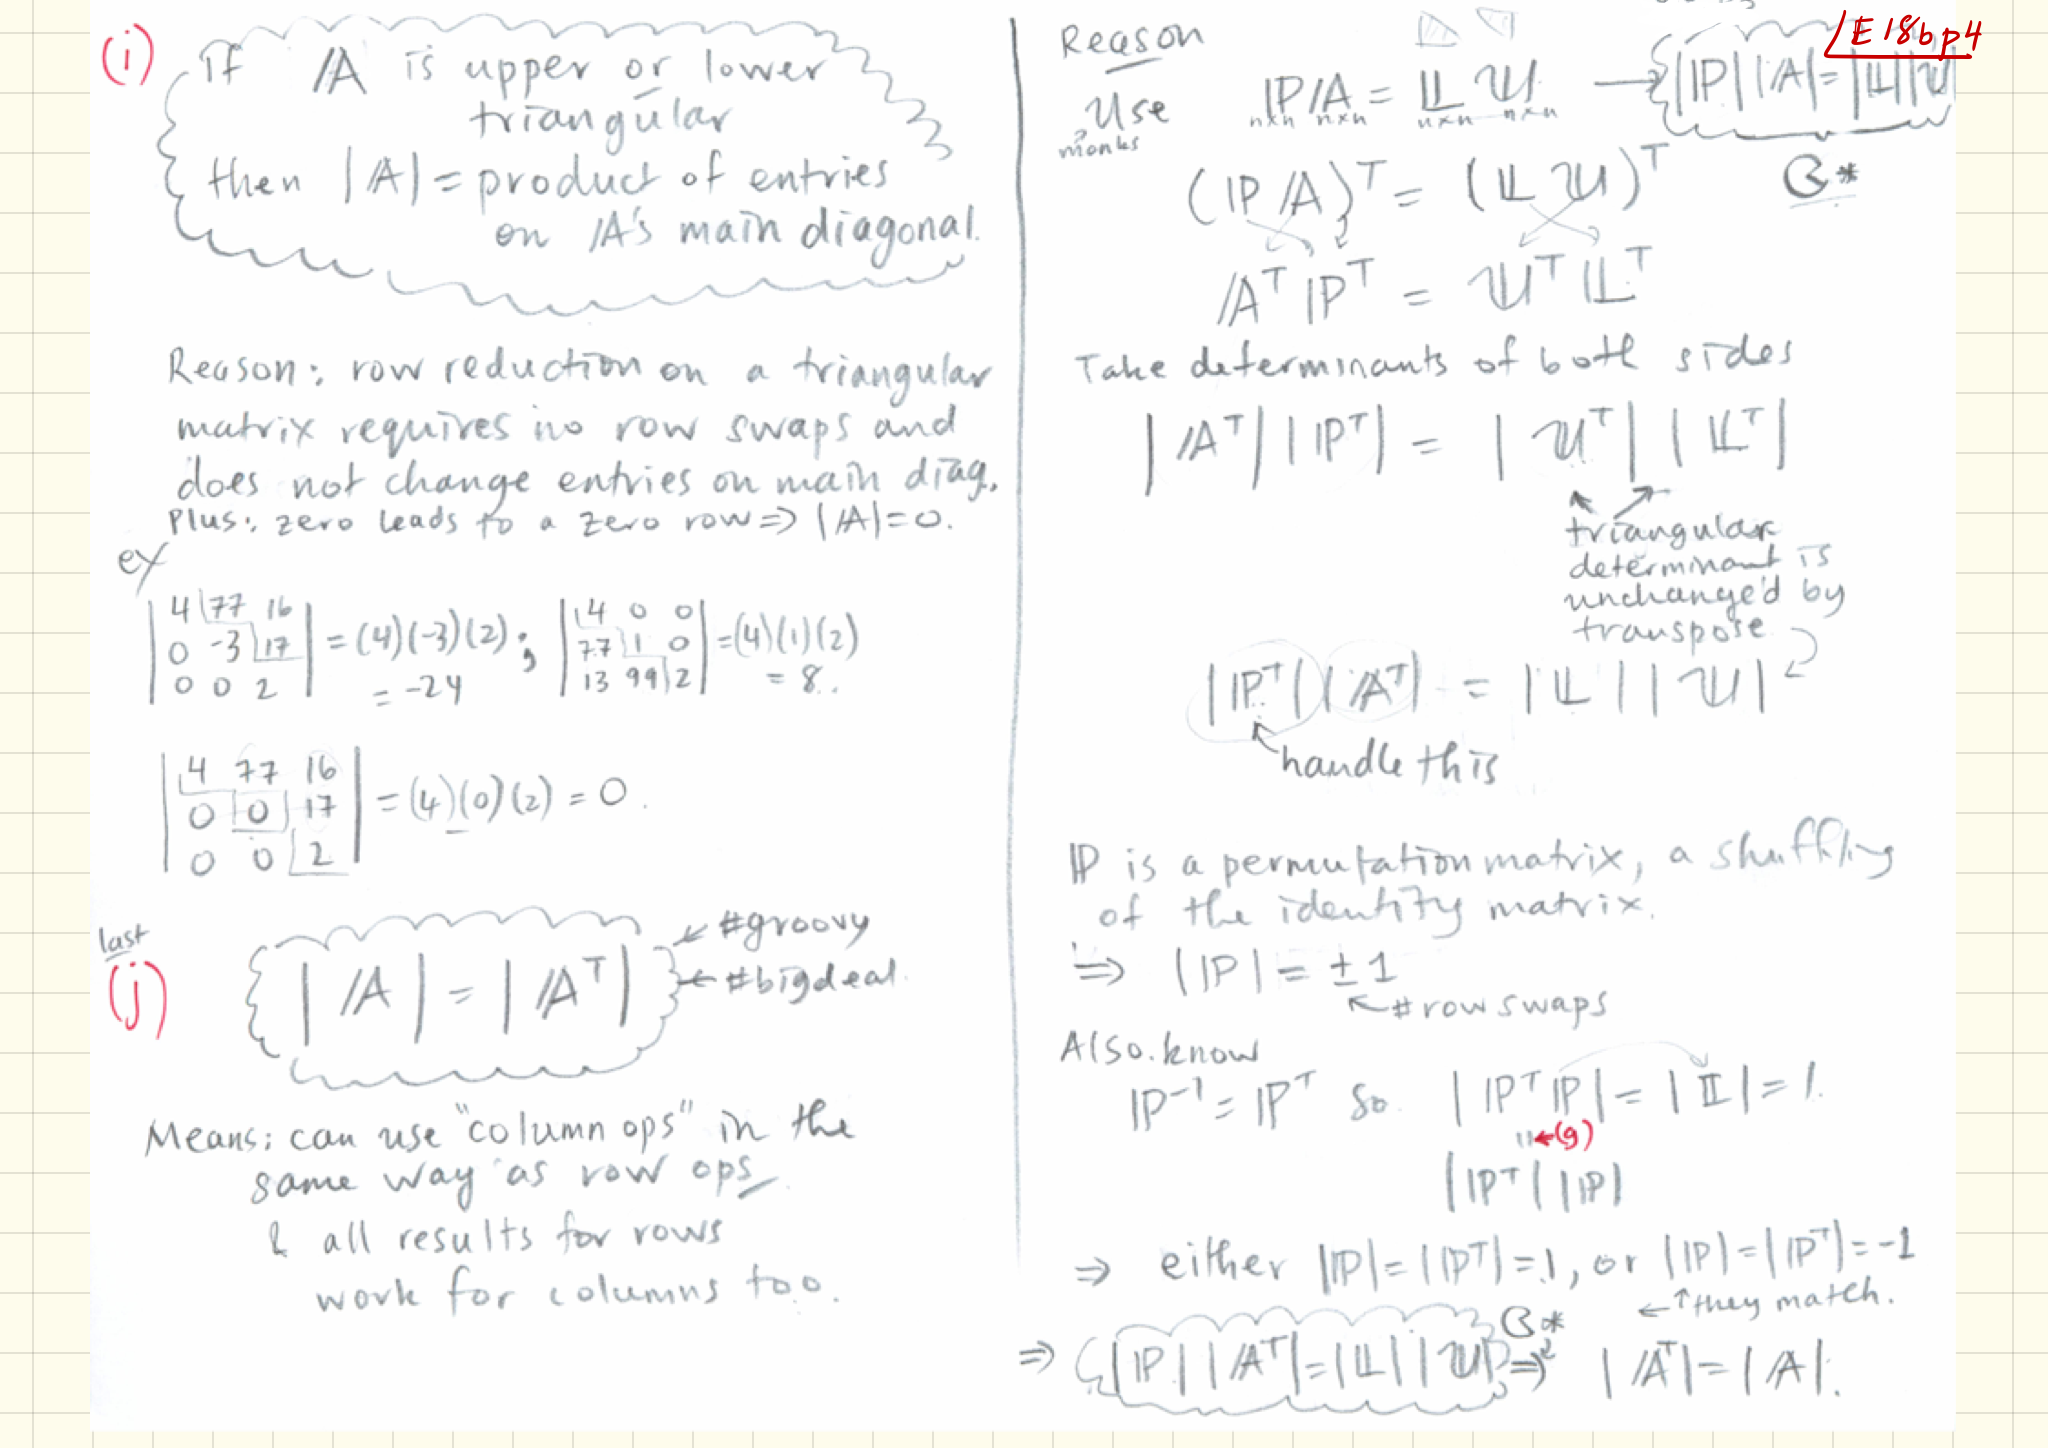 (i) If 𝔸 is upper or lower
triangular
then |𝔸| = product of entries
on 𝔸's main diagonal.
Reason: row reduction on a triangular
matrix requires no row swaps and
does not change entries on main diag.
Plus: zero leads to a zero row ⇒ |𝔸| = 0.
ex
| 4 77 16 |
| 0 -3 17 | = (4)(-3)(2) ;
| 0 0 2 | = -24
| 4 0 0 |
| 77 1 0 | = (4)(1)(2)
| 13 99 2 | = 8.
| 4 77 16 |
| 0 0 17 | = (4)(0)(2) = 0.
| 0 0 2 |
last
(j) |𝔸| = |𝔸ᵀ| ← #groovy
← #bigdeal.
Means: can use "column ops" in the
same way as row ops
& all results for rows
work for columns too.
E18b p4
Reason
Use ℙ𝔸 = 𝕃𝕌 → |ℙ||𝔸| = |𝕃||𝕌|
n×n n×n n×n n×n
monks
(ℙ𝔸)ᵀ = (𝕃𝕌)ᵀ
𝔸ᵀℙᵀ = 𝕌ᵀ𝕃ᵀ
Take determinants of both sides
|𝔸ᵀ||ℙᵀ| = |𝕌ᵀ||𝕃ᵀ|
triangular
determinant is
unchange'd by
transpose
|ℙᵀ||𝔸ᵀ| = |𝕃||𝕌|
handle this
ℙ is a permutation matrix, a shuffling
of the identity matrix.
⇒ |ℙ| = ±1
← # row swaps
Also. know
ℙ⁻¹ = ℙᵀ so |ℙᵀℙ| = |𝕀| = 1.
" ← (g)
|ℙᵀ||ℙ|
⇒ either |ℙ| = |ℙᵀ| = 1, or |ℙ| = |ℙᵀ| = -1
← ↑ they match.
⇒ |ℙ||𝔸ᵀ| = |𝕃||𝕌| ⇒ |𝔸ᵀ| = |𝔸|.